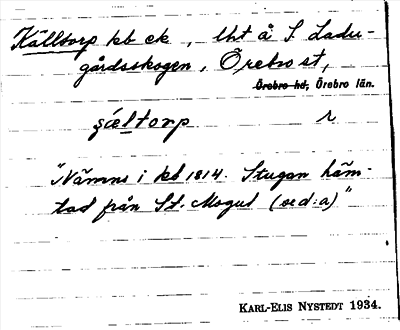 Källtorp kb ek , lht å S. Ladu-
gårdsskogen , Örebro st,
Örebro hd, Örebro län.
ɕæltorp r
"Nämns i kb 1814. Stugan häm-
tad från St. Mogul (ord:a)"
KARL-ELIS NYSTEDT 1934.